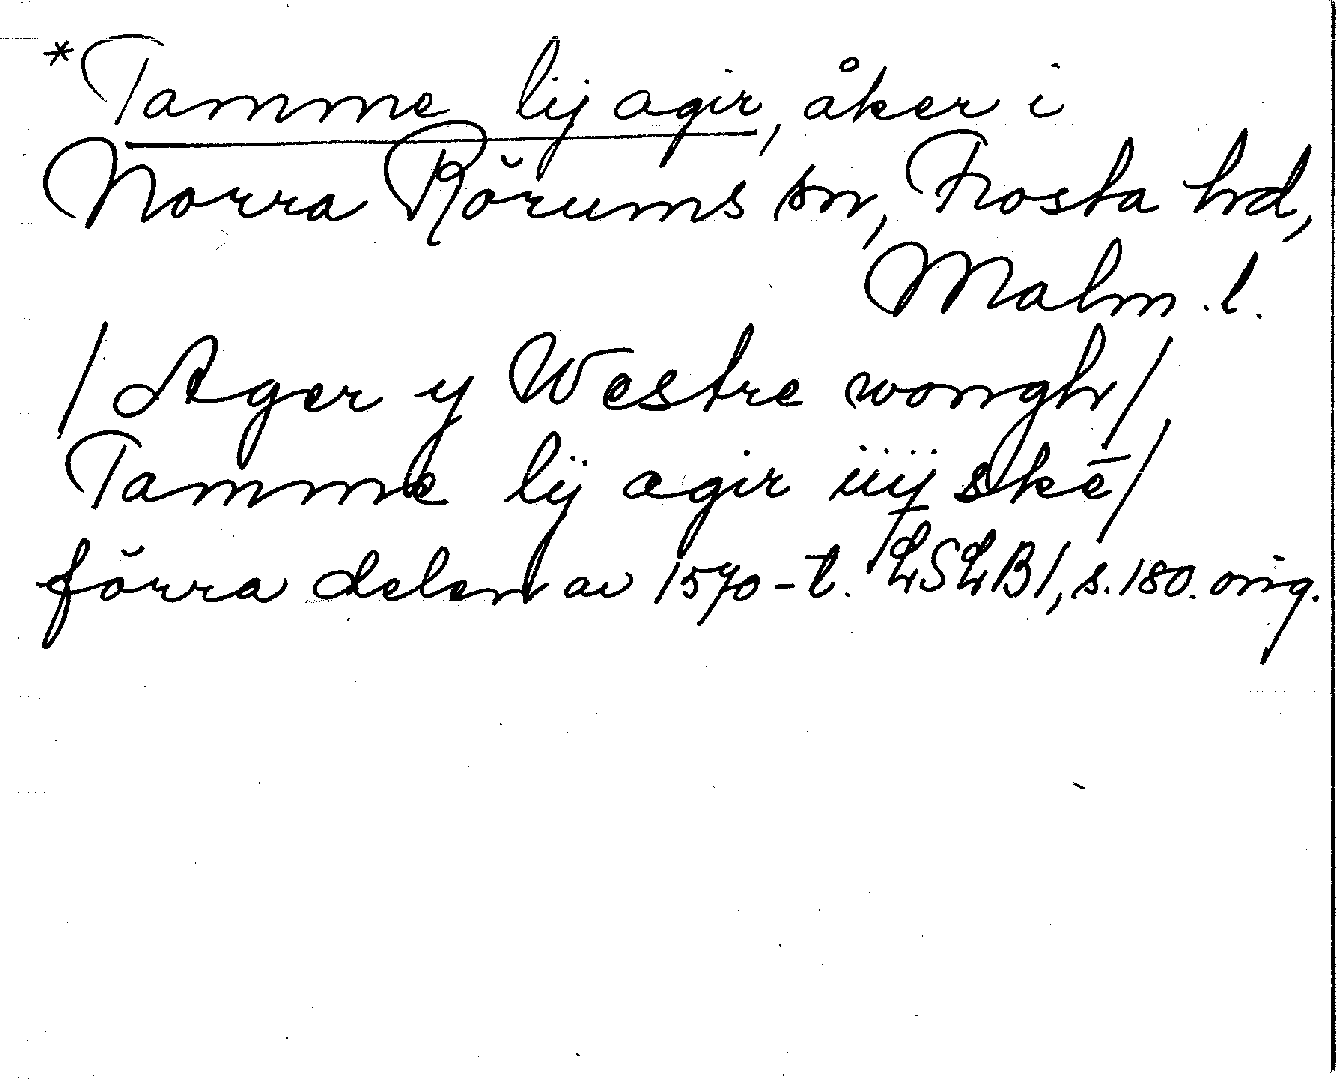 *Tamme lij agir, åker i
Norra Rörums sn, Frosta hd,
Malm. l.
/Ager y Westre wongh/
Tamme lij agir iiij skē/
förra delen av 1570-t. LSLB1, s.180. orig.